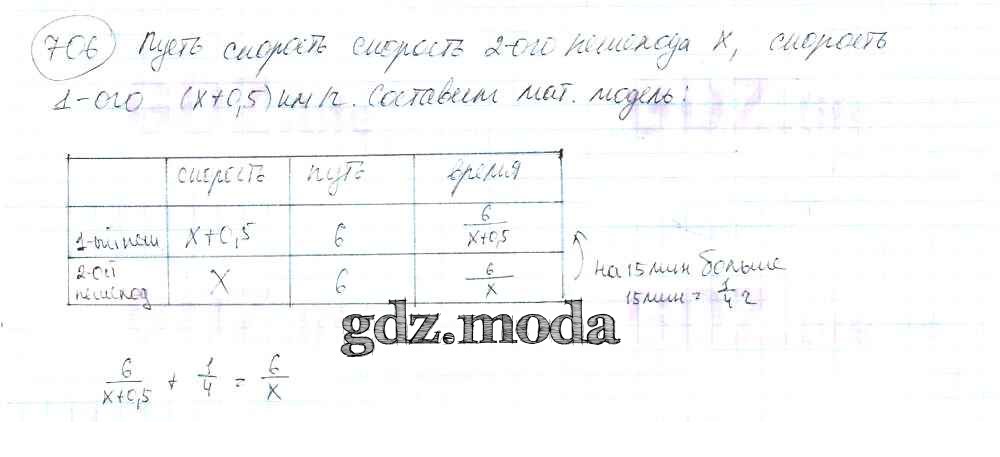 706 Пусть скорость скорость 2-ого пешехода х, скорость
1-ого (х+0,5) км/ч. Составим мат. модель:
скорость путь время
1-ый пеш х+0,5 6 6/х+0,5
2-ой пешеход х 6 6/х
на 15 мин больше
15 мин = 1/4 ч
gdz.moda
6/х+0,5 + 1/4 = 6/х